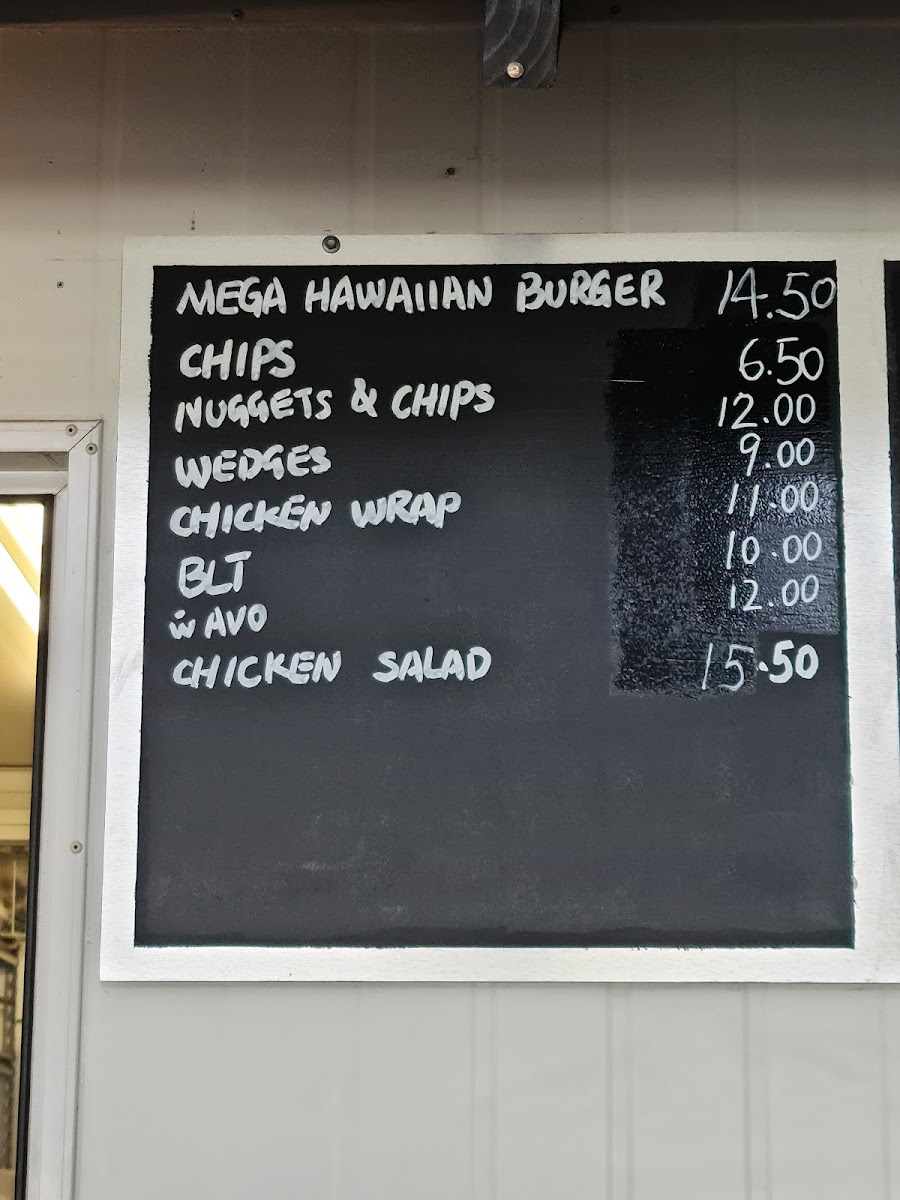 MEGA HAWAIIAN BURGER 14.50
CHIPS 6.50
NUGGETS & CHIPS 12.00
WEDGES 9.00
CHICKEN WRAP 11.00
BLT 10.00
w AVO 12.00
CHICKEN SALAD 15.50